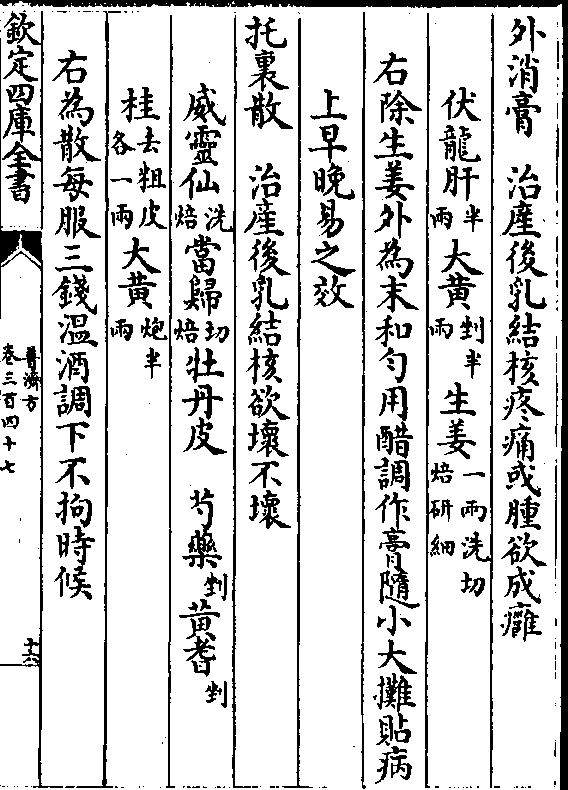 外消膏　治產後乳結核疼痛或腫欲成癰
伏龍肝半兩　大黃剉半兩　生姜一兩洗切焙研細
右除生姜外為末和勻用醋調作膏隨小大攤貼病
上早晚易之效
托裏散　治產後乳結核欲壞不壞
威靈仙洗焙　當歸切焙　牡丹皮　芍藥剉　黃耆剉
桂去粗皮各一兩　大黃炮半兩
右為散每服三錢溫酒調下不拘時候
欽定四庫全書
普濟方
卷三百四十七
十六